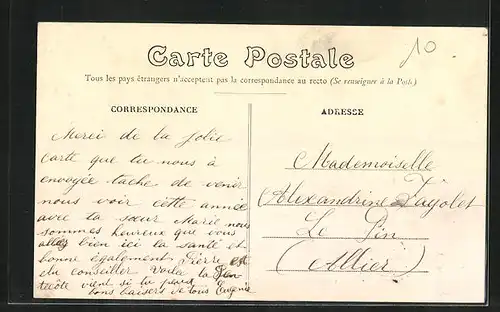 10
Carte Postale
Tous les pays étrangers n'acceptent pas la correspondance au recto (Se renseigner à la Poste)
CORRESPONDANCE
Merci de ta jolie
carte que tu nous à
envoyée tache de venir
nous voir cette année
avec ta sœur Marie nous
sommes heureux que vous
allez bien ici la santé et
bonne également Pierre est
du conseiller la Pen
tecôte vient si tu peux
bons baisers de tous Eugénie
ADRESSE
Mademoiselle
Alexandrine
Le Pin
(Allier)